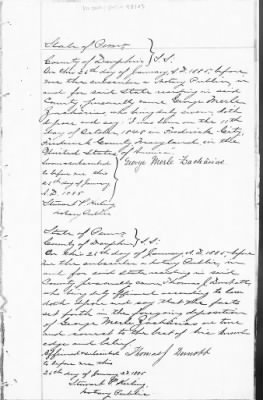 State of Penna
County of Dauphin } S.S.
On this 26th day of January A.D. 1885, before
me the subscriber a Notary Public in
and for said State residing in said
County, personally came George Merle
Zacharias who being duly sworn, doth
depose and say: I was born on the 11th
day of October 1848 in Frederick City,
Frederick County Maryland in the
United States of America.
Sworn & subscribed George Merle Zacharias
to before me this
26th day of January
A.D. 1885
Stewart
Notary Public
State of Penna
County of Dauphin } S.S.
On this 26th day of January A.D. 1885, before
me the subscriber a Notary Public, in
and for said State residing in said
County personally came Thomas J.
who being duly affirmed according to law
doth depose and say that the facts
set forth in the foregoing deposition
of George Merle Zacharias are true
and correct to the best of his knowl
edge and belief.
Affirmed & subscribed Thomas J
to before me this
26th day of January AD 1885
Stewart
Notary Public